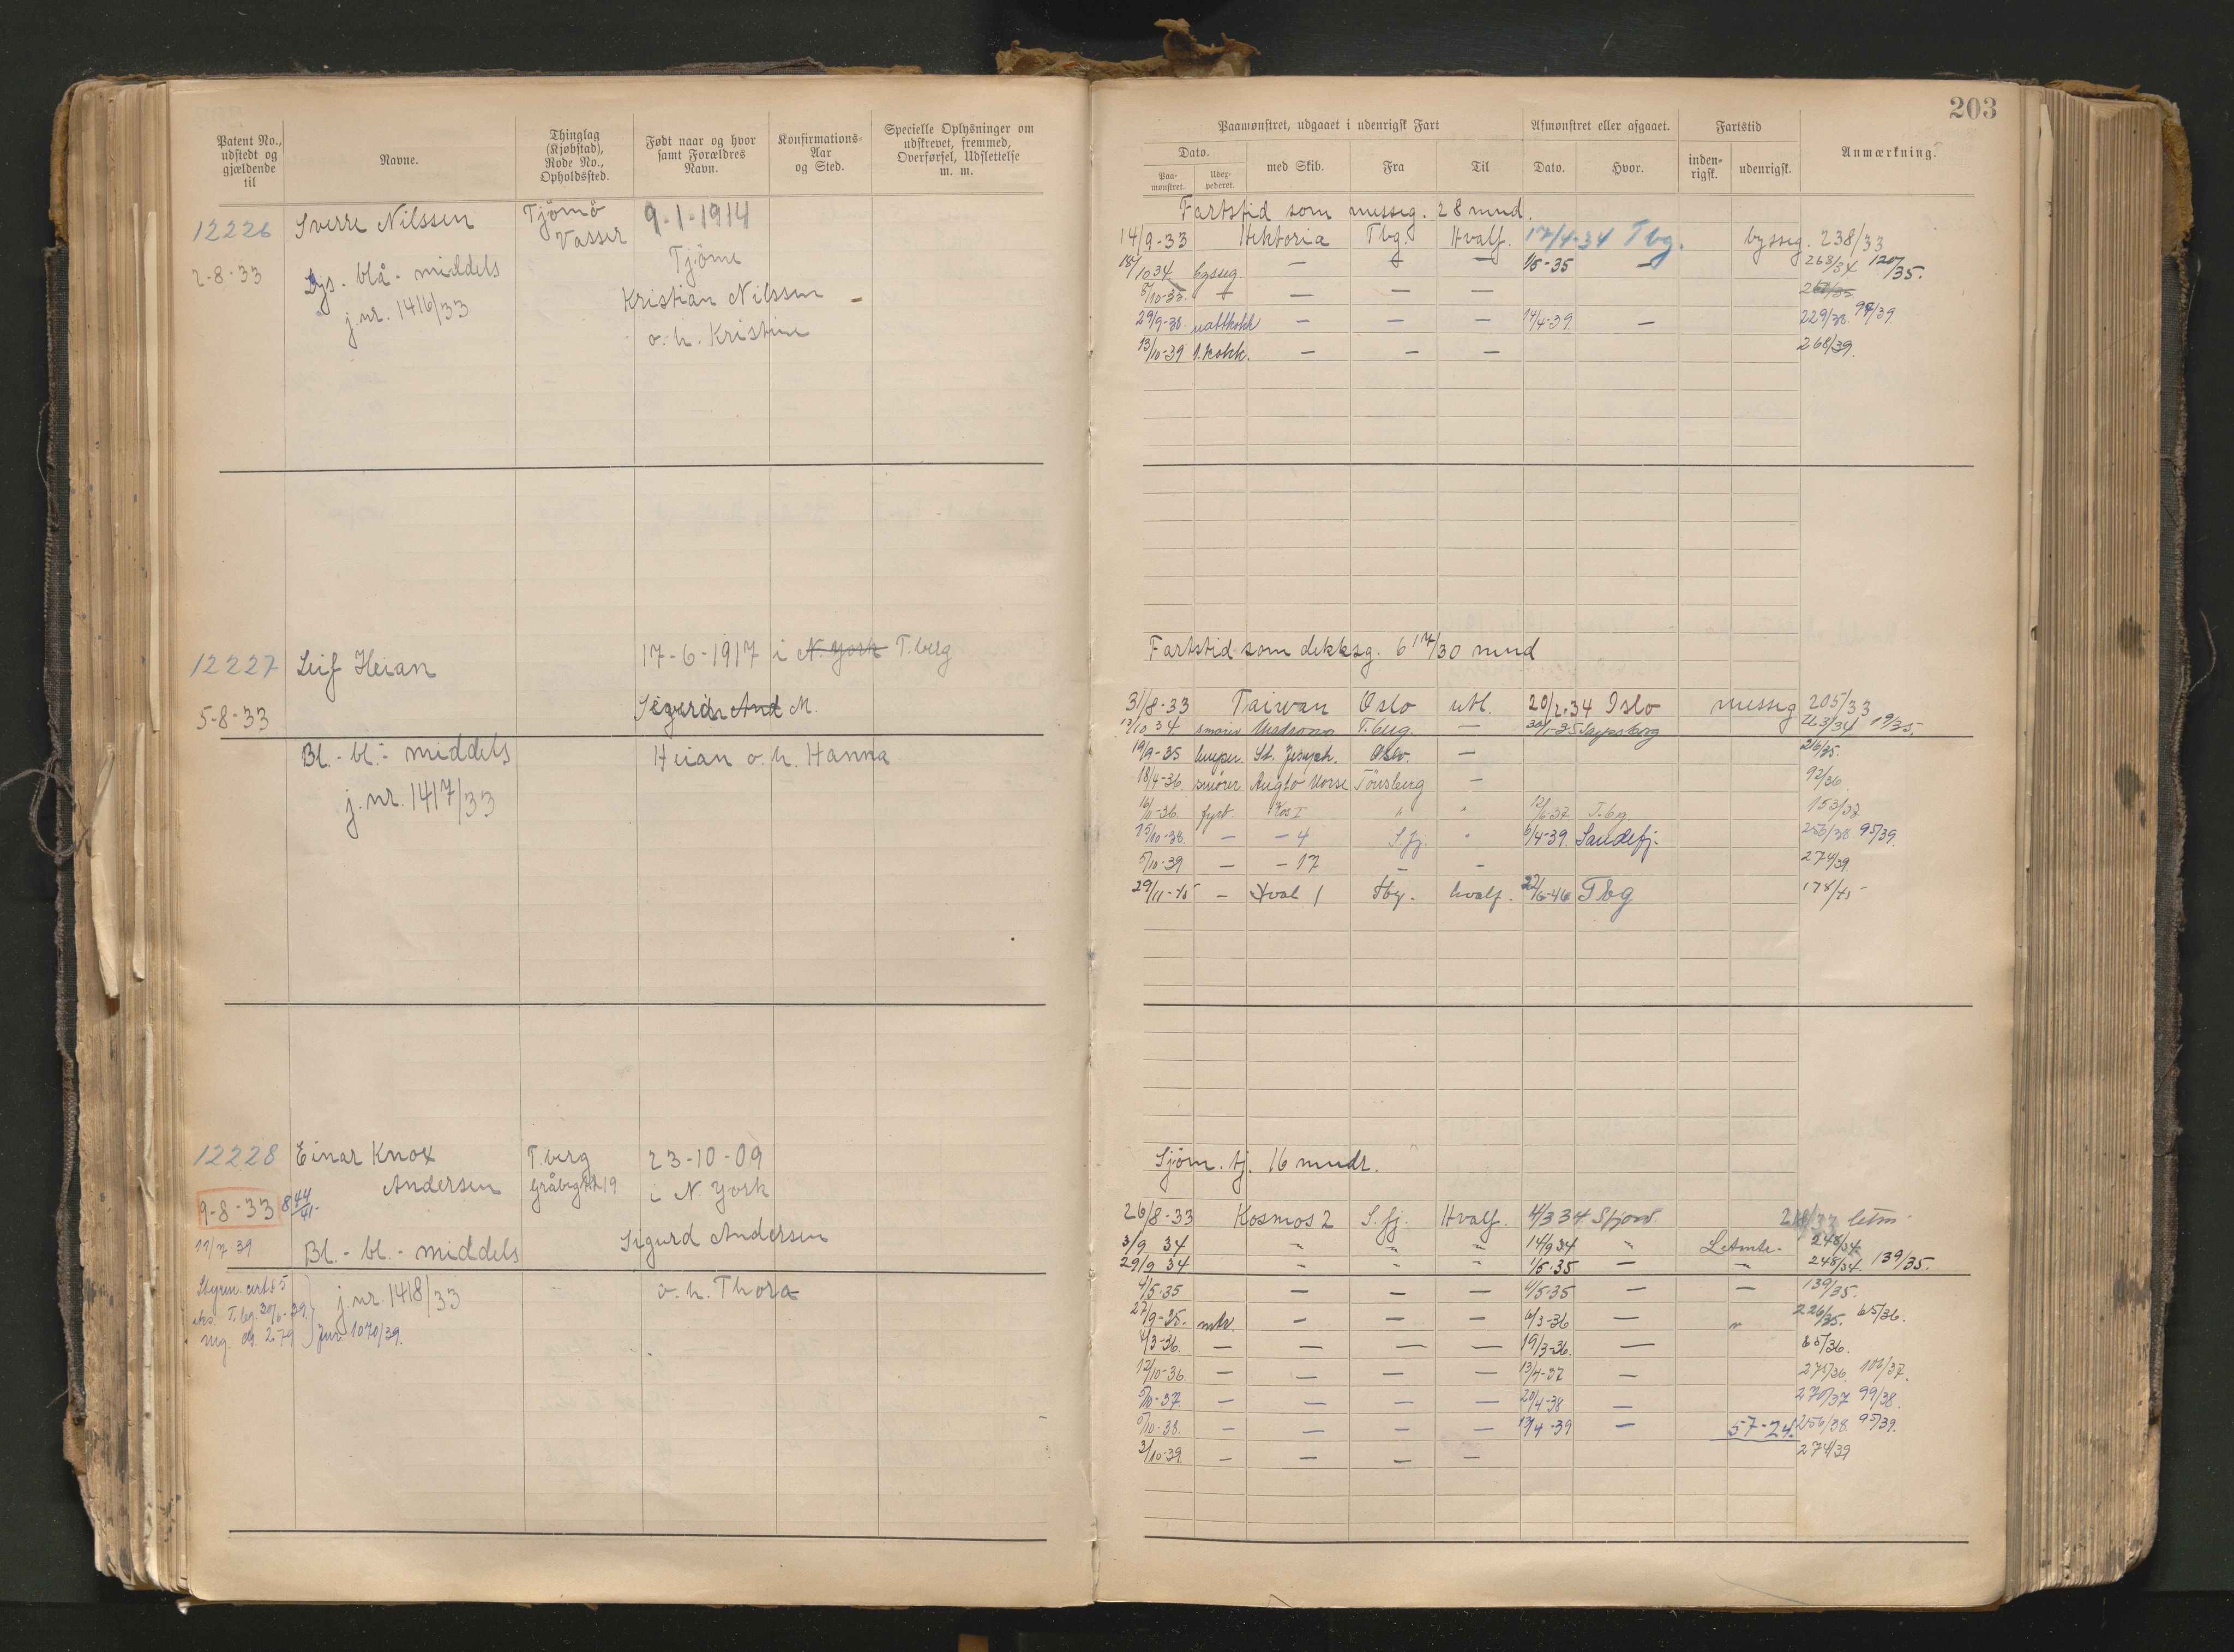 203
Patent No., udstedt og gjældende til
Navne.
Thinglag (Kjøbstad), Rode No., Opholdssted.
Født naar og hvor samt Forældres Navn.
Konfirmations-Aar og Sted.
Specielle Oplysninger om udskrevet, fremmed, Overførsel, Udslettelse m. m.
Paamønstret, udgaaet i udenrigsk Fart
Afmønstret eller afgaaet.
Fartstid
Anmærkning.
Dato.
Paa-mønstret.
med Skib.
Fra
Til
Dato.
Hvor.
inden-rigsk.
udenrigsk.
12226 Sverre Nilssen Tjömö 9-1-1914
Vasser
2-8-33 Lys. blå - middels Tjöme
j.nr. 1416/33 Kristian Nilssen
o. h. Kristine
Fartstid som messeg. 28 mnd.
14/9-33 Hektoria Tbg. Hvalf. 17/4-34 Tbg. bysseg. 238/33
18/10 34 bysseg. — — — 1/5-35 — 263/34 120/35.
8/10-35. — — — —
29/9-38 nattkokk — — — 14/4-39. — 229/38. 97/39.
13/10-39 1.kokk. — — — 268/39.
12227 Leif Heian 17-6-1917 i N. York T.berg
5-8-33 Sigurd And M.
Bl. - bl. - middels Heian o. h. Hanna
j.nr. 1417/33
Fartstid som dekksg. 6 17/30 mnd
31/8-33 Taiwan Oslo utl. 20/2-34 Oslo messeg 205/33
12/10 34 smører Madrono T.berg. — 30/1-35 Sarpsborg 263/34 19/35.
19/9-35 lemper St. Joseph. Oslo. — 216/35.
18/4-36 smører Anglo Norse Tönsberg — 92/36.
16/11-36. fyrb. Kos I " " 12/6-37 T.bg. 153/37
15/10-38. — — 4 S.fj. " 6/4-39. Sandefj. 256/38 95/39.
5/10-39 — — 17 — — 274/39.
29/11-45 — Hval 1 Tbg. hvalf. 22/6-46 Tbg 178/45
12228 Einar Knox T.berg 23-10-09
Andersen Gråbrgt 19 i N. York
9-8-33 8 44/41 Sigurd Andersen
11/7 39 Bl. - bl. - middels
j.nr. 1418/33 o. h. Thora
Styrm. cert
T.bg. 30/6-39.
Jnr. 1070/39.
Sjöm. tj. 16 mndr.
26/8-33 Kosmos 2 S.fj. Hvalf. 4/3 34 Sfjord.
3/9 34 " " " 14/9 34 " 248/34
29/9 34 " " " 1/5-35 — " 248/34. 139/35.
4/5-35 — — — 4/5-35 — — 139/35.
27/9-35. mtr. — — — 6/3-36 — " 226/35. 65/36.
4/3-36. — — — — 19/3-36. — 65/36.
12/10-36. — — — — 13/4-37 — 275/36. 106/37.
5/10-37. — — — — 20/4-38 — 270/37 99/38.
6/10-38. — — — — 19/4-39 — 57-24. 256/38. 95/39.
3/10-39. — — — — 274/39